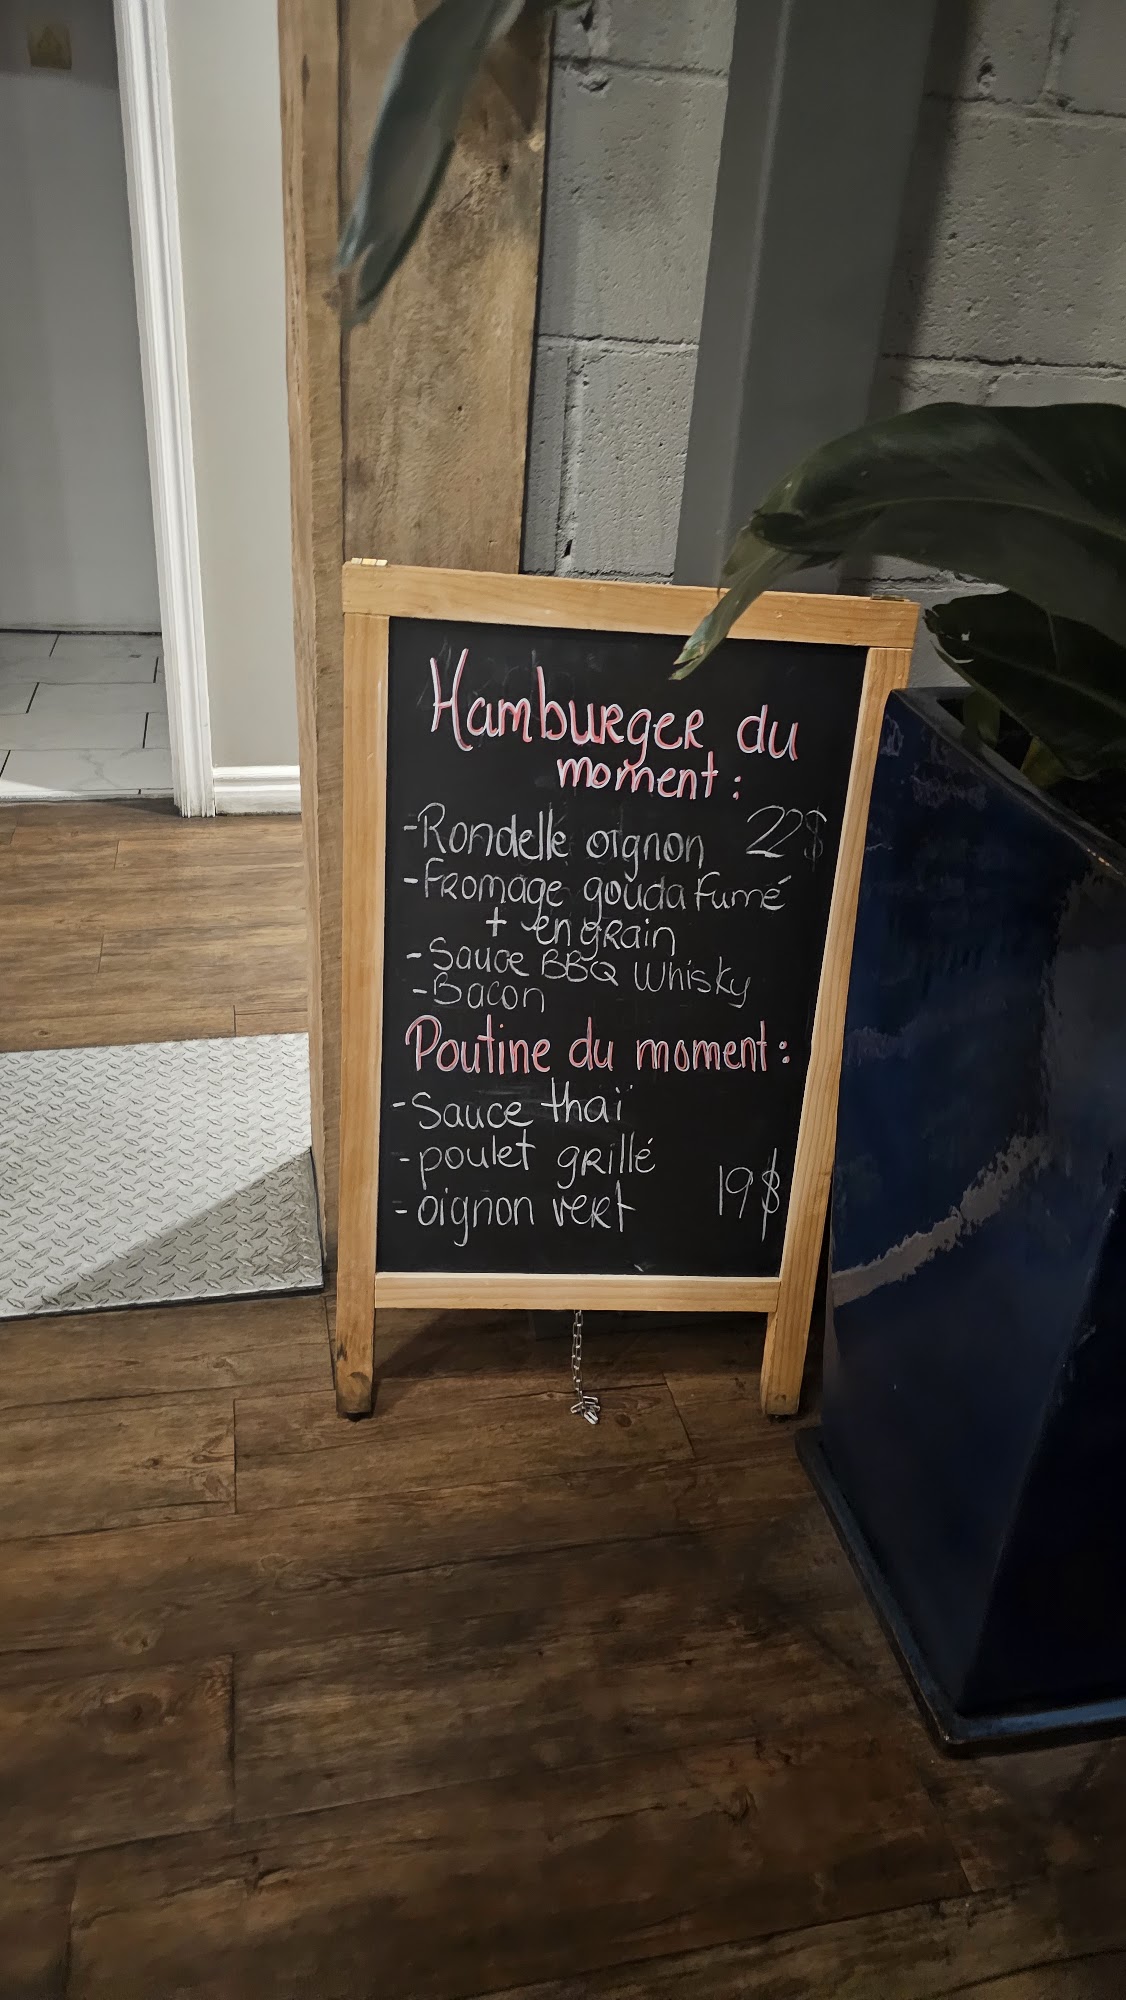 Hamburger du
moment :
-Rondelle oignon 22$
-Fromage gouda fumé
+ en grain
-Sauce BBQ Whisky
-Bacon
Poutine du moment :
-Sauce thaï
-poulet grillé
-oignon vert 19$